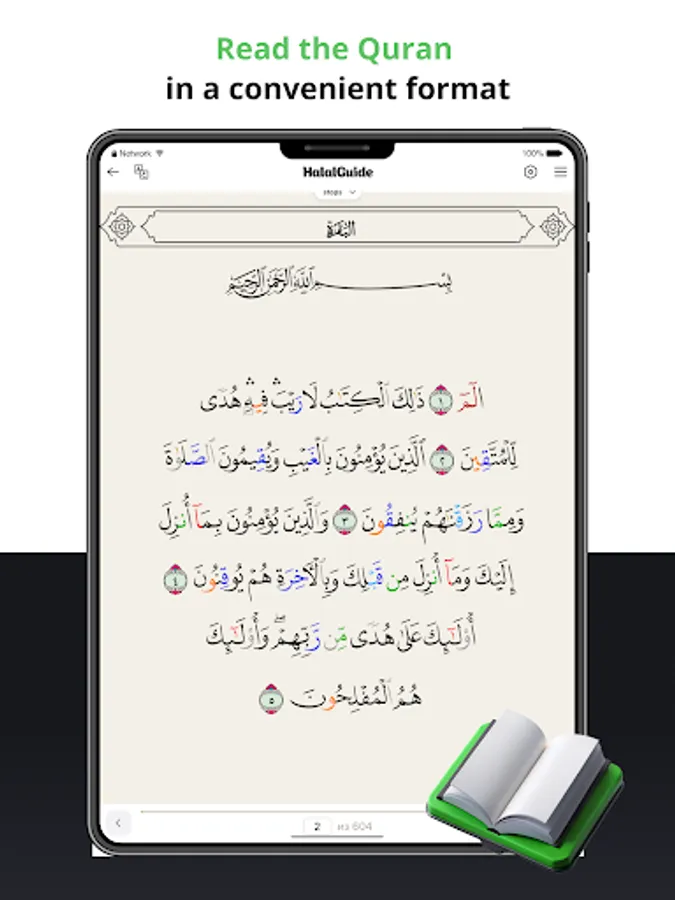 Read the Quran
in a convenient format
Network 100%
HalalGuide
البقرة
بِسْمِ ٱللَّهِ ٱلرَّحْمَٰنِ ٱلرَّحِيمِ
الٓمٓ ١ ذَٰلِكَ ٱلْكِتَٰبُ لَا رَيْبَ ۛ فِيهِ ۛ هُدًى
لِّلْمُتَّقِينَ ٢ ٱلَّذِينَ يُؤْمِنُونَ بِٱلْغَيْبِ وَيُقِيمُونَ ٱلصَّلَوٰةَ
وَمِمَّا رَزَقْنَٰهُمْ يُنفِقُونَ ٣ وَٱلَّذِينَ يُؤْمِنُونَ بِمَآ أُنزِلَ
إِلَيْكَ وَمَآ أُنزِلَ مِن قَبْلِكَ وَبِٱلْءَاخِرَةِ هُمْ يُوقِنُونَ ٤
أُو۟لَٰٓئِكَ عَلَىٰ هُدًى مِّن رَّبِّهِمْ ۖ وَأُو۟لَٰٓئِكَ
هُمُ ٱلْمُفْلِحُونَ ٥
2 из 604